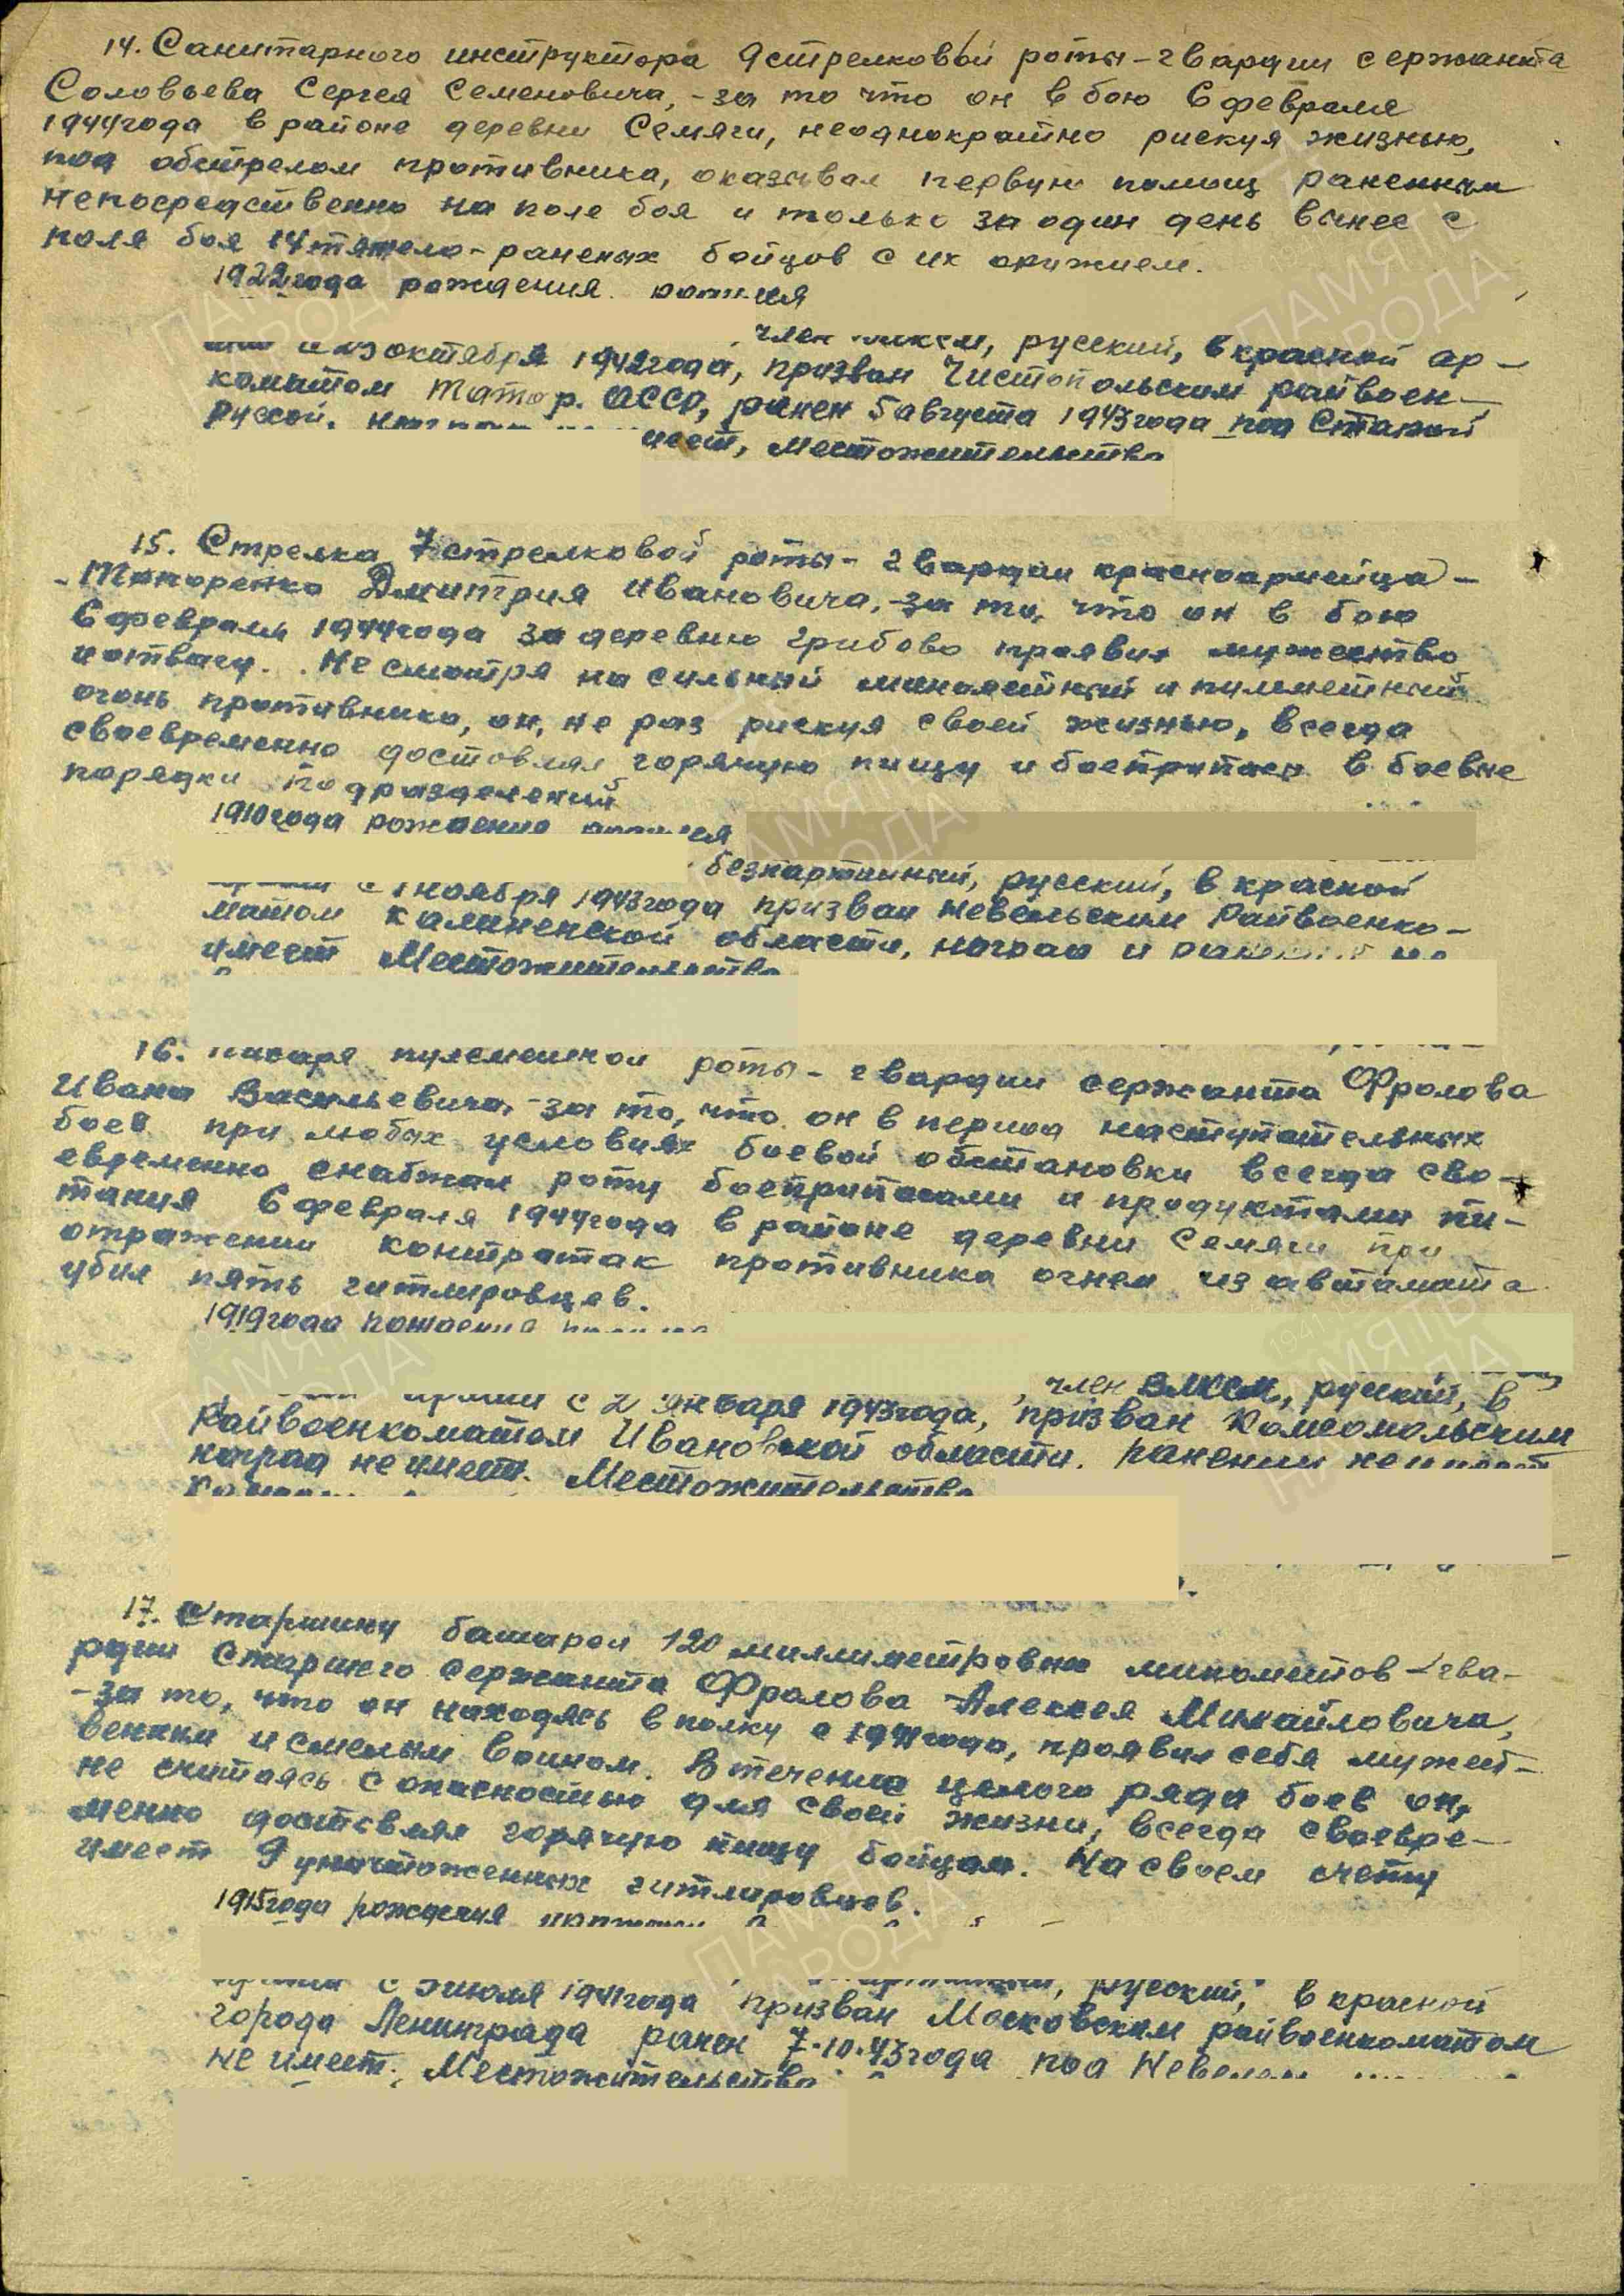 14. Санитарного инструктора 9 стрелковой роты - гвардии сержанта
Соловьева Сергея Семеновича, - за то что он в бою 6 февраля
1944 года в районе деревни Семяги, неоднократно рискуя жизнью,
под обстрелом противника, оказывал первую помощ раненным
непосредственно на поле боя и только за один день вынес с
поля боя 14 тяжело-раненых бойцов с их оружием.
1922 года рождения
член русский, в красной ар-
23 октября 1942 года, призван Чистопольским райвоен-
коматом Татар. АССР, ранен 5 августа 1943 года под Старой
Руссой, имеет, Местожительство
15. Стрелка 7 стрелковой роты - гвардии красноармейца -
Дмитрия Ивановича, - за то, что он в бою
6 февраля 1944 года за деревню Грибово проявил мужество
и отвагу. Не смотря на сильный минометный и пулеметный
огонь противника, он, не раз рискуя своей жизнью, всегда
своевременно доставлял горячую пищу и боеприпасы в боевые
порядки подразделений
1910 года рождения
безпартийный, русский, в красной
с 1 ноября 1943 года призван Невельским Райвоенко-
матом Калиненской области, наград и ранений не
имеет Местожительство
16. Писаря пулеметной роты - гвардии сержанта Фролова
Ивана Васильевича, - за то, что он в период наступательных
боев при любых условиях боевой обстановки всегда сво-
евременно снабжал роту боеприпасами и продуктами пи-
тания 6 февраля 1944 года в районе деревни Семяги при
отражении контратак противника огнем из автамата
убил пять гитлировцев.
1919 года рождения
член ВЛКСМ, русский, в
армии с 2 января 1943 года, призван Комсомольским
Райвоенкоматом Ивановской области. Ранений не имеет
наград не имеет. Местожительство
17. Старшину батареи 120 миллиметровых минометов - гва-
рдии Старшего сержанта Фролова Алексея Михайловича,
- за то, что он находясь в полку с 1941 года, проявил себя мужест-
венным и смелым воином. В течении целого ряда боев он,
не считаясь с опасностью для своей жизни, всегда своевре-
менно доставлял горячую пищу бойцам. На своем счету
имеет 9 уничтоженных гитлировцев.
1915 года рождения
русский, в красной
армии с июля 1941 года призван Московским райвоенкоматом
города Ленинграда ранен 7.10.43 года под Невелем
не имеет. Местожительство